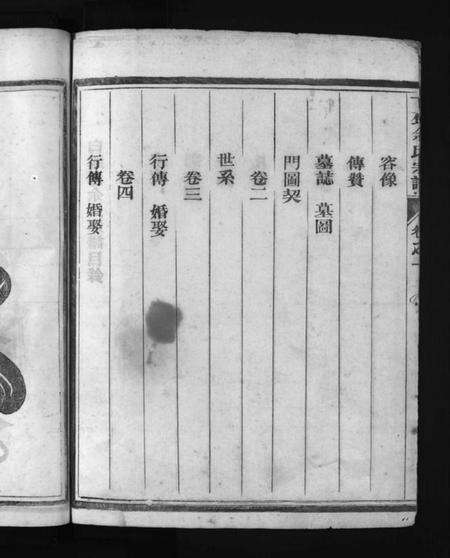 容像
傳贊
墓誌 墓圖
門圖契
卷二
世系
卷三
行傳 婚娶
卷四
行傳 婚娶